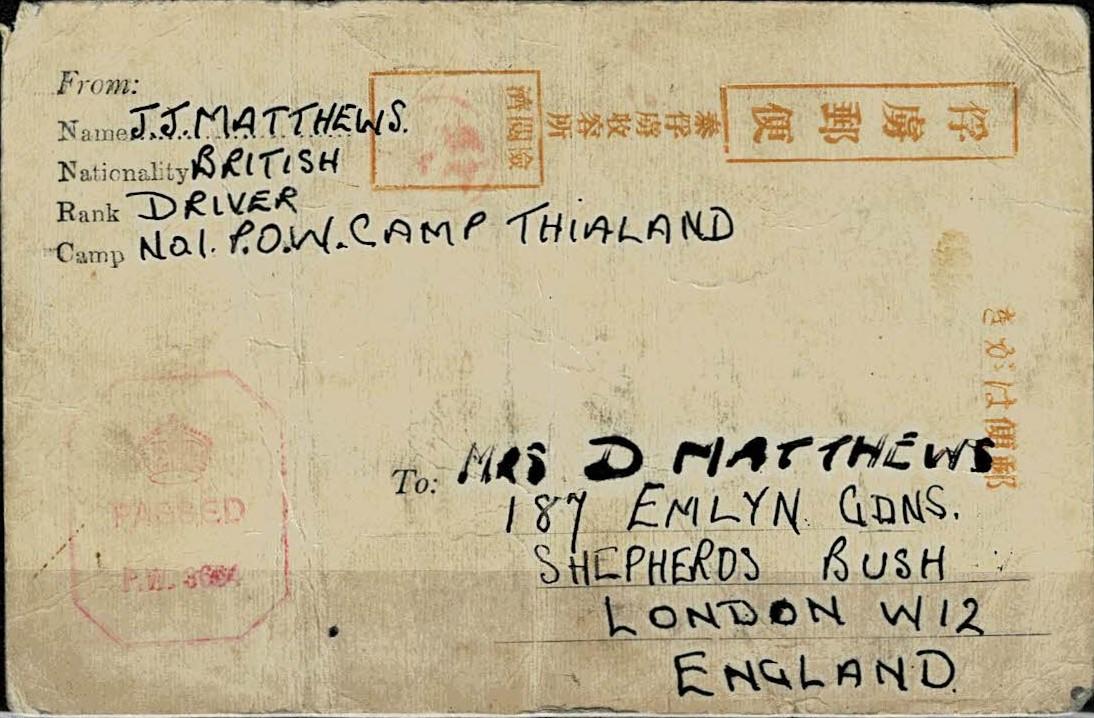 From:
Name J.J. MATTHEWS.
Nationality BRITISH
Rank DRIVER
Camp No1. P.O.W. CAMP THIALAND
俘虜郵便
泰俘虜收容所
檢閲濟
郵便はがき
PASSED
P.W.
To: MRS D MATTHEWS
187 EMLYN GDNS.
SHEPHERDS BUSH
LONDON W12
ENGLAND.